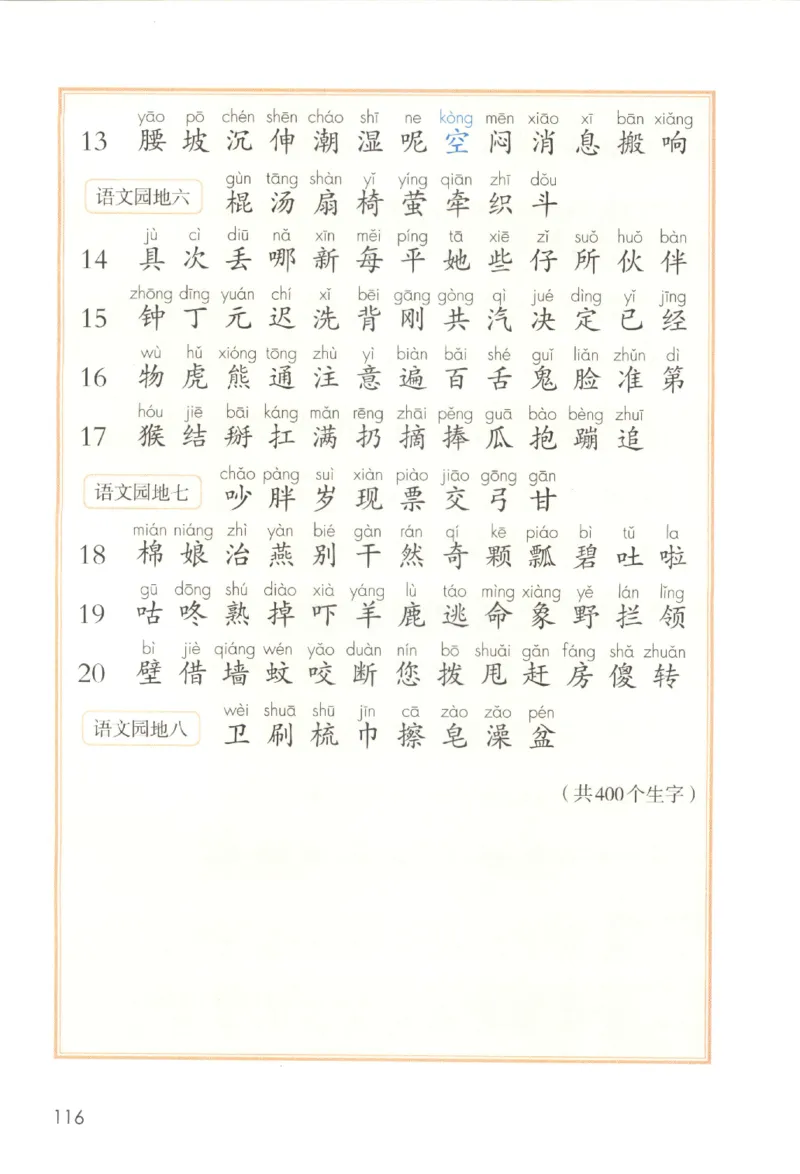 yāo pō chén shēn cháo shī ne kòng mēn xiāo xī bān xiǎng
13 腰 坡 沉 伸 潮 湿 呢 空 闷 消 息 搬 响
gùn tāng shàn yǐ yíng qiān zhī dǒu
语文园地六 棍 汤 扇 椅 萤 牵 织 斗
jù cì diū nǎ xīn měi píng tā xiē zǐ suǒ huǒ bàn
14 具 次 丢 哪 新 每 平 她 些 仔 所 伙 伴
zhōng dīng yuán chí xǐ bēi gāng gòng qì jué dìng yǐ jīng
15 钟 丁 元 迟 洗 背 刚 共 汽 决 定 已 经
wù hǔ xióng tōng zhù yì biàn bǎi shé guǐ liǎn zhǔn dì
16 物 虎 熊 通 注 意 遍 百 舌 鬼 脸 准 第
hóu jiē bāi káng mǎn rēng zhāi pěng guā bào bèng zhuī
17 猴 结 掰 扛 满 扔 摘 捧 瓜 抱 蹦 追
chǎo pàng suì xiàn piào jiāo gōng gān
语文园地七 吵 胖 岁 现 票 交 弓 甘
mián niáng zhì yàn bié gàn rán qí kē piáo bì tǔ la
18 棉 娘 治 燕 别 干 然 奇 颗 瓢 碧 吐 啦
gū dōng shú diào xià yáng lù táo mìng xiàng yě lán lǐng
19 咕 咚 熟 掉 吓 羊 鹿 逃 命 象 野 拦 领
bì jiè qiáng wén yǎo duàn nín bō shuǎi gǎn fáng shǎ zhuǎn
20 壁 借 墙 蚊 咬 断 您 拨 甩 赶 房 傻 转
wèi shuā shū jīn cā zào zǎo pén
语文园地八 卫 刷 梳 巾 擦 皂 澡 盆
（共400个生字）
116